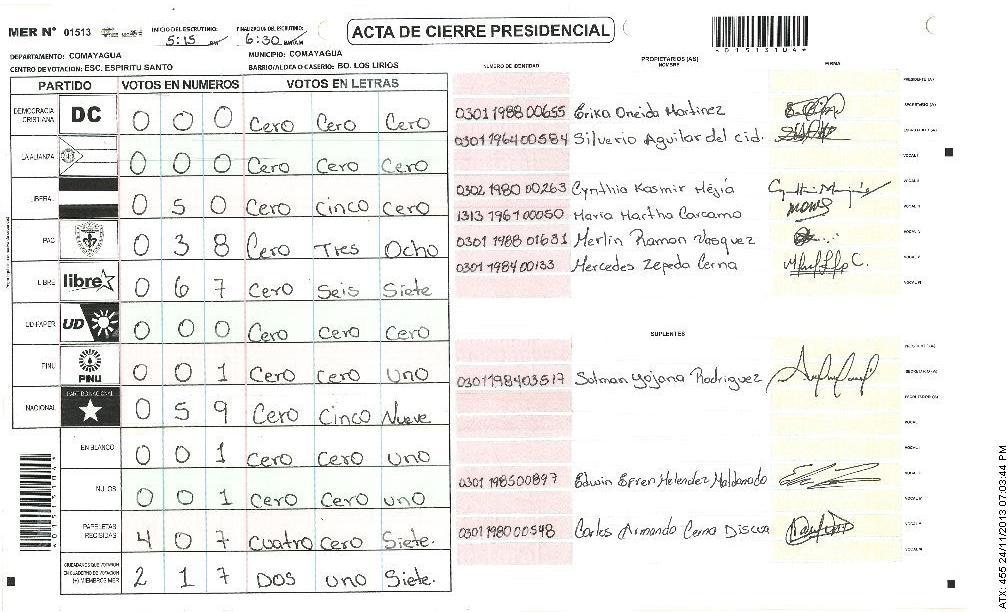 MER Nº 01513
INICIO DEL ESCRUTINIO: 5:15 PM
FINALIZACION DEL ESCRUTINIO: 6:30
ACTA DE CIERRE PRESIDENCIAL
DEPARTAMENTO: COMAYAGUA
MUNICIPIO: COMAYAGUA
CENTRO DE VOTACION: ESC. ESPIRITU SANTO
BARRIO/ALDEA O CASERIO: BO. LOS LIRIOS
PARTIDO VOTOS EN NUMEROS VOTOS EN LETRAS
DEMOCRACIA CRISTIANA DC 0 0 0 Cero Cero Cero
LA ALIANZA 0 0 0 Cero Cero Cero
LIBERAL 0 5 0 Cero Cinco Cero
PAC 0 3 8 Cero Tres Ocho
LIBRE libre 0 6 7 Cero Seis Siete
UD-FAPER UD 0 0 0 Cero Cero Cero
PINU PINU 0 0 1 Cero Cero Uno
NACIONAL PARTIDO NACIONAL 0 5 9 Cero Cinco Nueve
EN BLANCO 0 0 1 Cero Cero Uno
NULOS 0 0 1 Cero Cero uno
PAPELETAS RECIBIDAS 4 0 7 Cuatro Cero Siete.
CIUDADANOS QUE VOTARON EN CUADERNO DE VOTACION (+) MIEMBROS MER 2 1 7 DOS Uno Siete.
A01513104*
NUMERO DE IDENTIDAD
PROPIETARIOS (AS)
NOMBRE
FIRMA
PRESIDENTE (A)
0301 1988 00655 Erika Oneida Martinez SECRETARIO (A)
0301 1964 00584 Silverio Aguilar del cid. ESCRUTADOR (A)
VOCAL I
0302 1980 00263 Cynthia Kasmir Mejía VOCAL II
1313 1961 00050 Maria Martha Carcamo
0301 1988 01631 Merlin Ramon Vasquez
0301 1984 00133 Mercedes Zepeda Cerna
SUPLENTES
PRESIDENTE (A)
0301 1984 03517 Solman Yojana Rodriguez SECRETARIO (A)
ESCRUTADOR (A)
0301 1985 00897 Edwin Efren Melendez Maldonado
0301 1980 00548 Carlos Armando Cerna Discua
ATX: 455 24/11/2013 07:03:44 PM